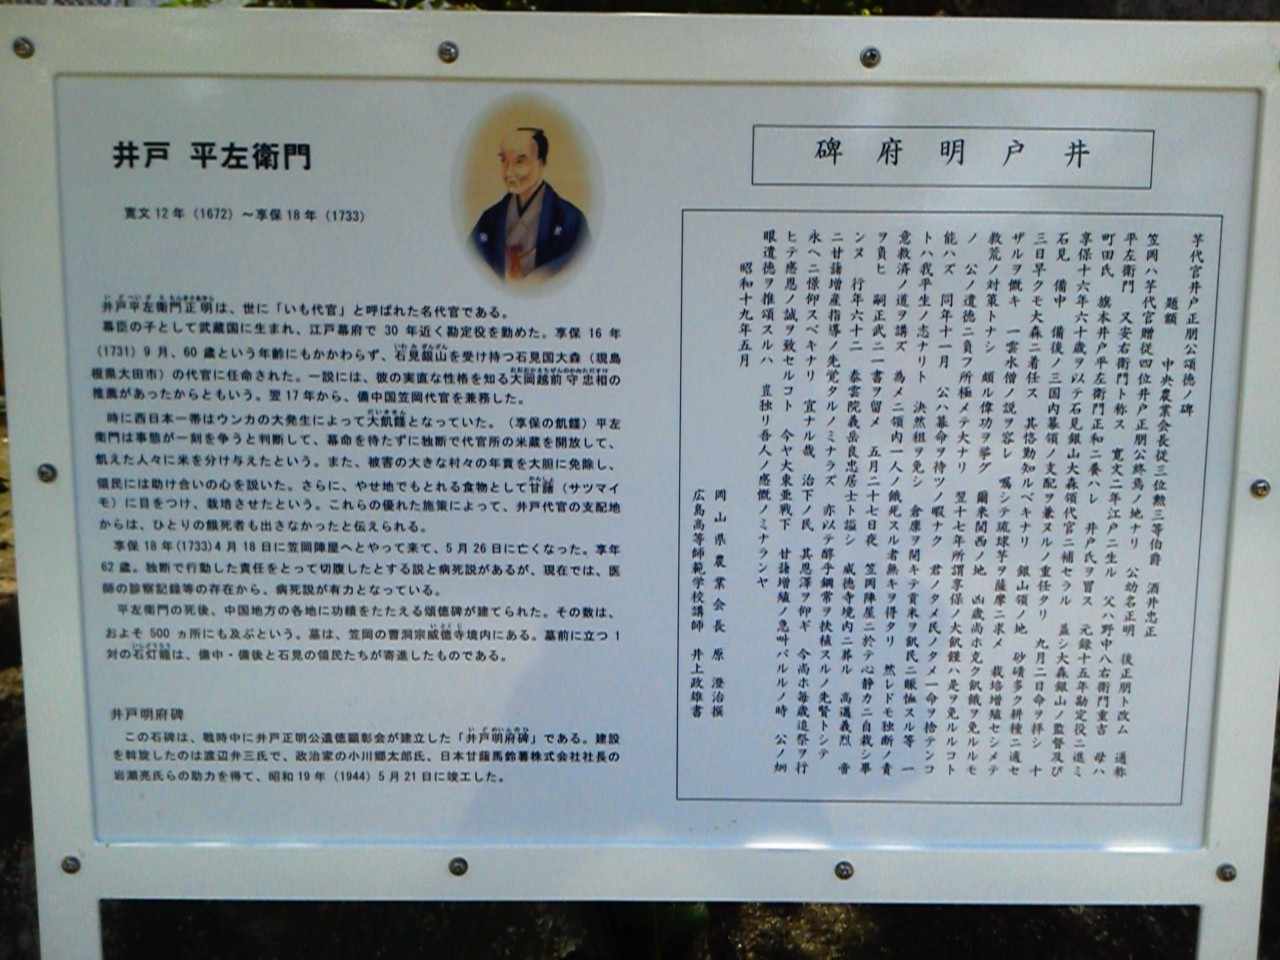 井戸 平左衛門
寛文12年（1672）～享保18年（1733）
井戸平左衛門正明は、世に「いも代官」と呼ばれた名代官である。
幕臣の子として武蔵国に生まれ、江戸幕府で 30 年近く勘定役を勤めた。享保 16 年
（1731）9 月、60 歳という年齢にもかかわらず、石見銀山を受け持つ石見国大森（現島
根県大田市）の代官に任命された。一説には、彼の実直な性格を知る大岡越前守忠相の
推薦があったからともいう。翌 17 年から、備中国笠岡代官を兼務した。
時に西日本一帯はウンカの大発生によって大飢饉となっていた。（享保の飢饉）平左
衛門は事態が一刻を争うと判断して、幕命を待たずに独断で代官所の米蔵を開放して、
飢えた人々に米を分け与えたという。また、被害の大きな村々の年貢を大胆に免除し、
領民には助け合いの心を説いた。さらに、やせ地でもとれる食物として甘藷（サツマイ
モ）に目をつけ、栽培させたという。これらの優れた施策によって、井戸代官の支配地
からは、ひとりの餓死者も出さなかったと伝えられる。
享保 18 年(1733)4 月 18 日に笠岡陣屋へとやって来て、5 月 26 日に亡くなった。享年
62 歳。独断で行動した責任をとって切腹したとする説と病死説があるが、現在では、医
師の診察記録等の存在から、病死説が有力となっている。
平左衛門の死後、中国地方の各地に功積をたたえる頌徳碑が建てられた。その数は、
およそ 500 ヵ所にも及ぶという。墓は、笠岡の曹洞宗威徳寺境内にある。墓前に立つ 1
対の石灯籠は、備中・備後と石見の領民たちが寄進したものである。
井戸明府碑
この石碑は、戦時中に井戸正明公遺徳顕彰会が建立した「井戸明府碑」である。建設
を斡旋したのは渡辺弁三氏で、政治家の小川郷太郎氏、日本甘藷馬鈴薯株式会社社長の
岩瀬亮氏らの助力を得て、昭和 19 年（1944）5 月 21 日に竣工した。
碑府明戸井
芋代官井戸正朋公頌徳ノ碑
題額 中央農業会長従三位勲三等伯爵 酒井忠正
笠岡ハ芋代官贈従四位井戸正朋公終焉ノ地ナリ 公幼名正明 後正朋ト改ム 通称
平左衛門 又安右衛門ト称ス 寛文二年江戸ニ生ル 父ハ野中八右衛門重吉 母ハ
町田氏 旗本井戸平左衛門正和ニ養ハレ 井戸氏ヲ冒ス 元録十五年勘定役ニ進ミ
享保十六年六十歳ヲ以テ石見銀山大森領代官ニ補セラル 蓋シ大森銀山ノ監督及び
石見 備中 備後ノ三国内幕領ノ支配ヲ兼ヌルノ重任タリ 九月二日命ヲ拝シ 十
三日早クモ大森ニ着任ス 其恪勤知ルベキナリ 銀山領ノ地 砂磧多ク耕種ニ適セ
ザルヲ慨キ 一雲水僧ノ説ヲ容レ 嘱シテ琉球芋ヲ薩摩ニ求メ 栽培増殖セシメテ
救荒ノ対策トナシ 頗ル偉功ヲ挙グ 爾来関西ノ地 凶歳尚ホ克ク飢餓ヲ免ルルモ
ノ 公ノ遺徳ニ負フ所極メテ大ナリ 翌十七年所謂享保ノ大飢饉ハ是ヲ免ルルコト
能ハズ 同年十一月 公ハ幕命ヲ待ツノ暇ナク 君ノタメ民ノタメ一命ヲ捨テンコ
トハ我平生ノ志ナリト 決然租ヲ免シ 倉廩ヲ開キテ貢米ヲ飢民ニ賑恤スル等 一
意救済ノ道ヲ講ズ 為メニ領内一人ノ餓死スル者無キヲ得タリ 然レドモ独断ノ責
ヲ負ヒ 嗣正武ニ一書ヲ留メ 五月二十七日夜 笠岡陣屋ニ於テ心静カニ自裁シ畢
ンヌ 行年六十二 泰雲院義岳良忠居士ト謚シ 威徳寺境内ニ葬ル 高邁義烈 啻
ニ甘藷増産指導ノ先覚タルノミナラズ 亦以テ醇乎綱常ヲ扶植スルノ先賢トシテ
永ヘニ憬仰スベキナリ 宜ナル哉 治下ノ民 其恩澤ヲ仰ギ 今尚ホ毎歳追祭ヲ行
ヒテ感恩ノ誠ヲ致セルコト 今ヤ大東亜戦下 甘藷増殖ノ急叫バルルノ時 公ノ炯
眼遺徳ヲ推頌スルハ 豈独リ吾人ノ感慨ノミナランヤ
昭和十九年五月
岡山県農業会長 原 澄治撰
広島高等師範学校講師 井上政雄書